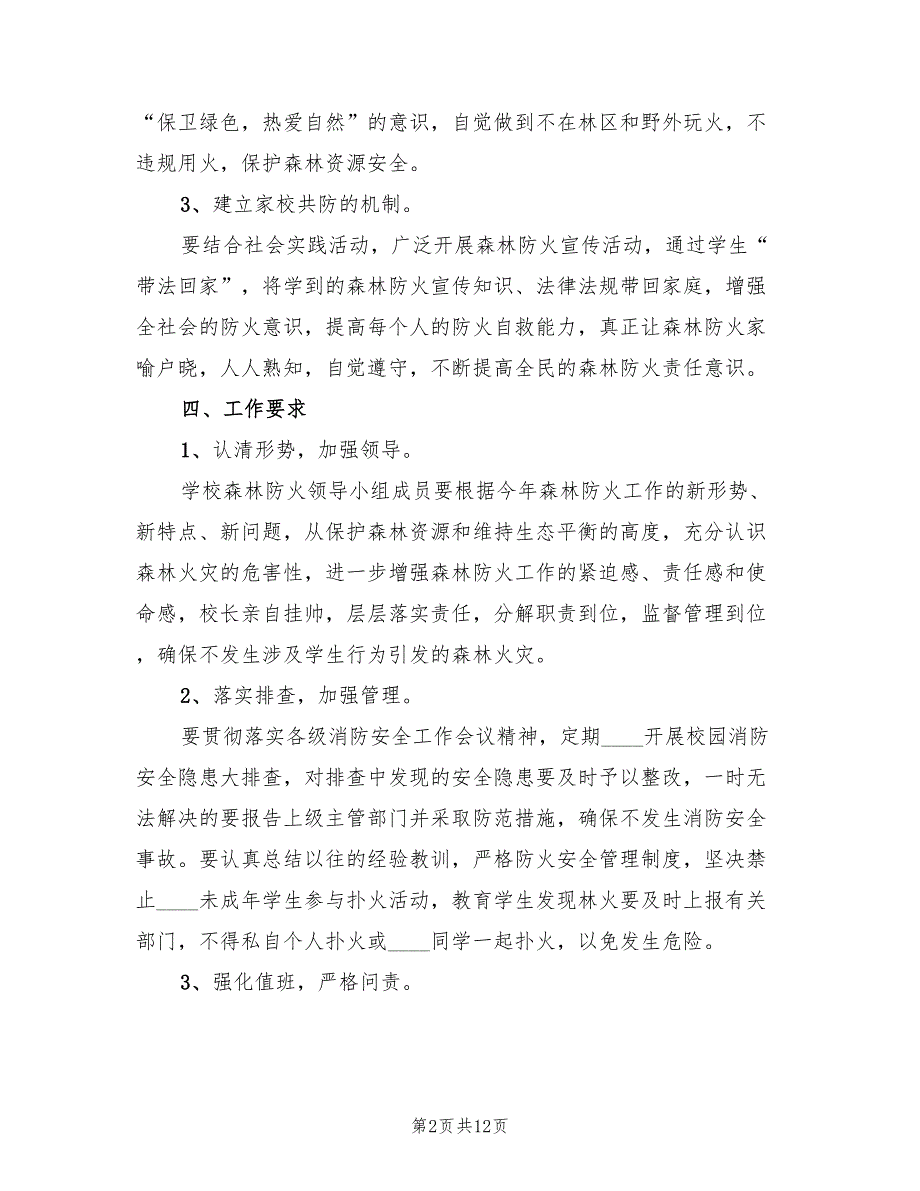 “保卫绿色，热爱自然”的意识，自觉做到不在林区和野外玩火，不
违规用火，保护森林资源安全。
3、建立家校共防的机制。
要结合社会实践活动，广泛开展森林防火宣传活动，通过学生“
带法回家”，将学到的森林防火宣传知识、法律法规带回家庭，增强
全社会的防火意识，提高每个人的防火自救能力，真正让森林防火家
喻户晓，人人熟知，自觉遵守，不断提高全民的森林防火责任意识。
四、工作要求
1、认清形势，加强领导。
学校森林防火领导小组成员要根据今年森林防火工作的新形势、
新特点、新问题，从保护森林资源和维持生态平衡的高度，充分认识
森林火灾的危害性，进一步增强森林防火工作的紧迫感、责任感和使
命感，校长亲自挂帅，层层落实责任，分解职责到位，监督管理到位
，确保不发生涉及学生行为引发的森林火灾。
2、落实排查，加强管理。
要贯彻落实各级消防安全工作会议精神，定期____开展校园消防
安全隐患大排查，对排查中发现的安全隐患要及时予以整改，一时无
法解决的要报告上级主管部门并采取防范措施，确保不发生消防安全
事故。要认真总结以往的经验教训，严格防火安全管理制度，坚决禁
止____未成年学生参与扑火活动，教育学生发现林火要及时上报有关
部门，不得私自个人扑火或____同学一起扑火，以免发生危险。
3、强化值班，严格问责。
第2页共12页